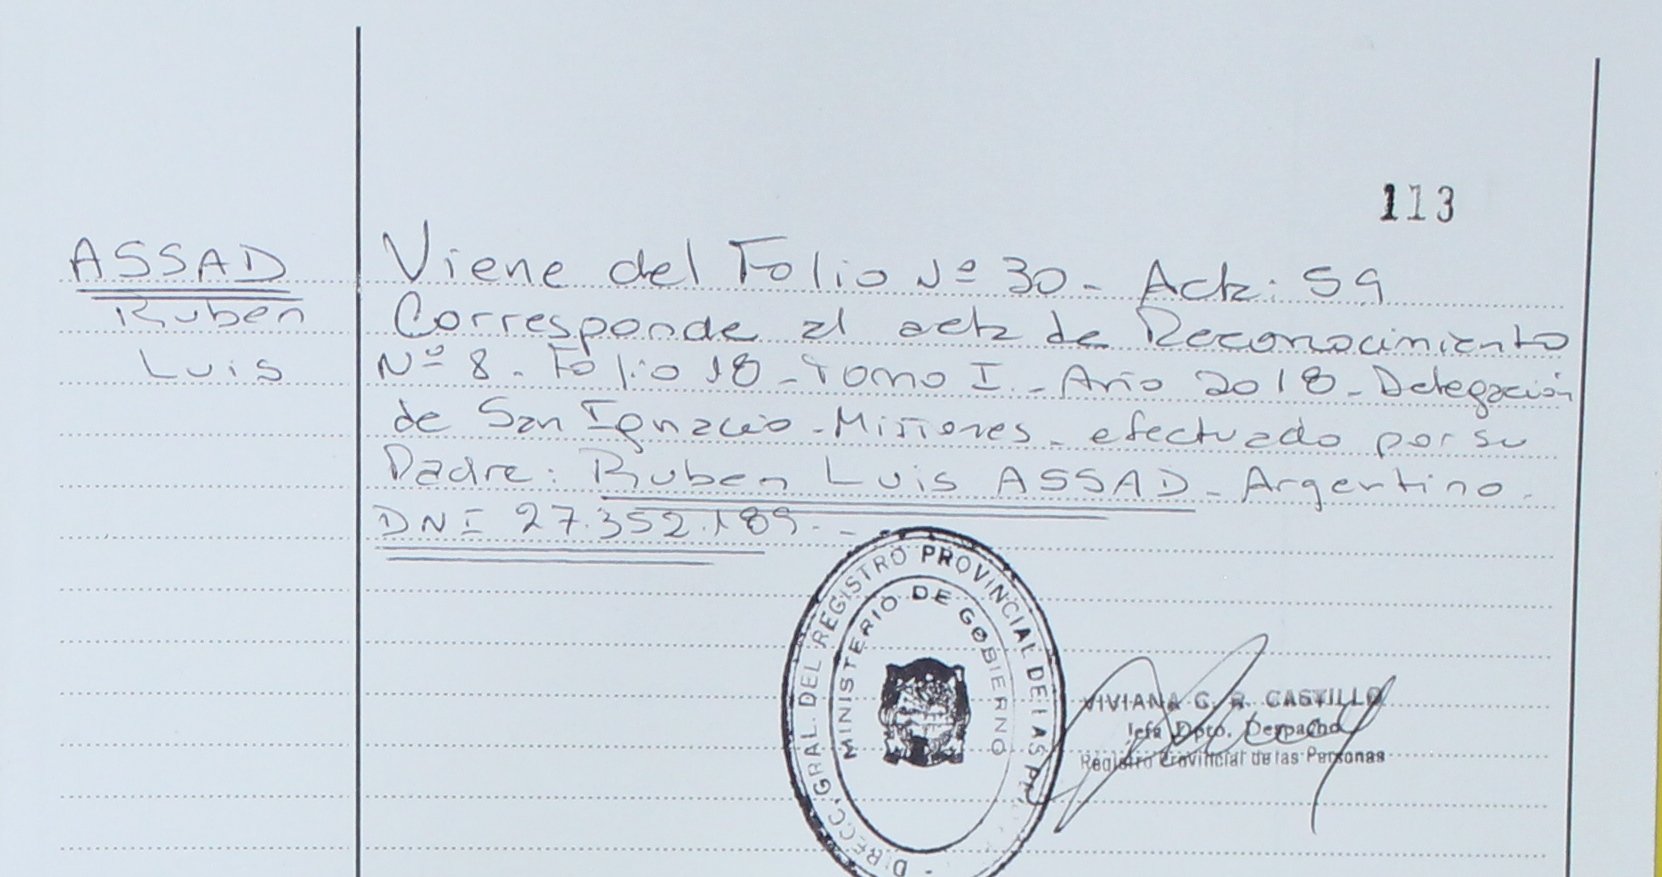 113
ASSAD
Ruben
Luis
Viene del Folio Nº 30 - Acta: 59
Corresponde al acta de Reconocimiento
Nº 8 - Folio 18 - Tomo I - Año 2018 - Delegación
de San Ignacio - Misiones - efectuado por su
Padre: Ruben Luis ASSAD - Argentino -
DNI 27.352.189.-
DIRECC. GRAL. DEL REGISTRO PROVINCIAL DE LAS
MINISTERIO DE GOBIERNO
VIVIANA G. R. CASTILLO
Jefa Dpto. Despacho
Registro Provincial de las Personas